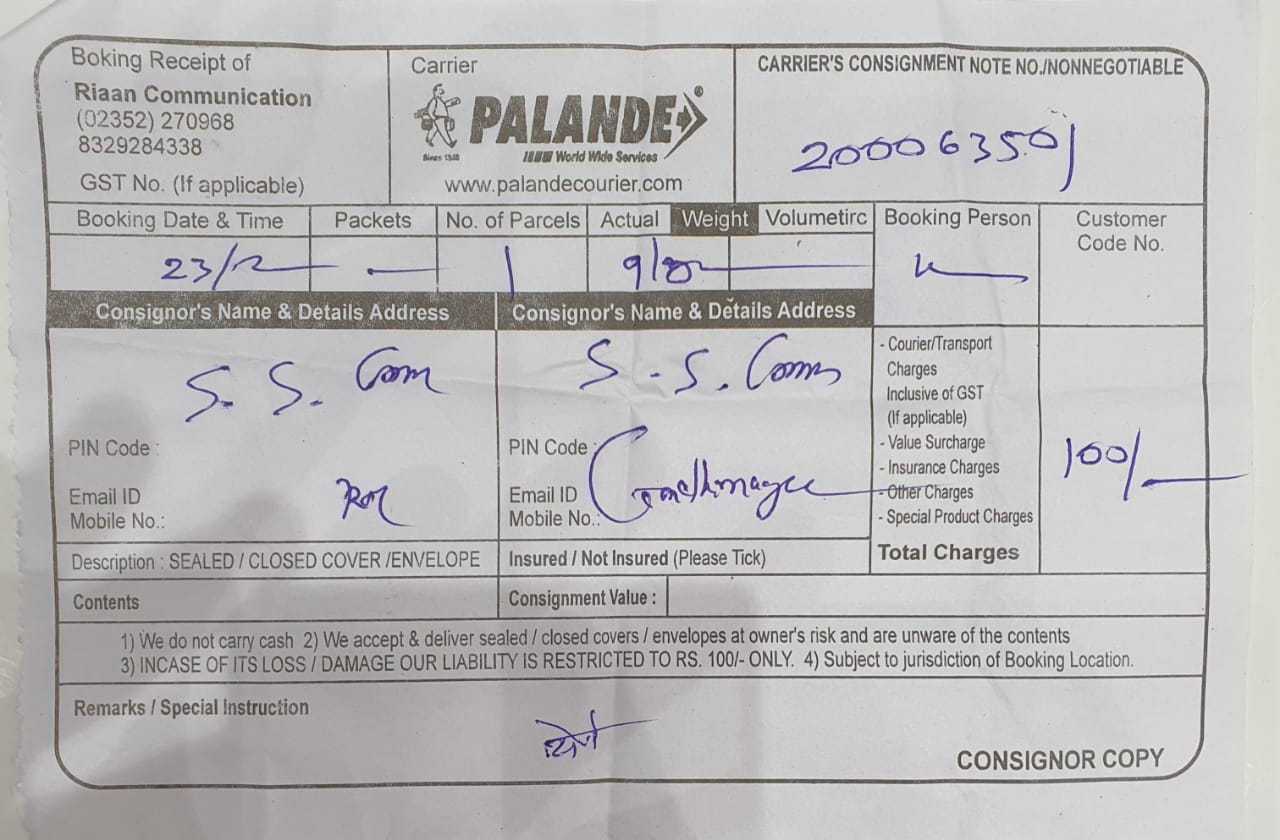 Boking Receipt of
Riaan Communication
(02352) 270968
8329284338
GST No. (If applicable)
Carrier
PALANDE
Since 1948
World Wide Services
www.palandecourier.com
CARRIER'S CONSIGNMENT NOTE NO./NONNEGOTIABLE
200063501
Booking Date & Time
23/12
Packets
No. of Parcels
1
Actual Weight Volumetirc
Booking Person
Customer
Code No.
Consignor's Name & Details Address
S. S. Com
PIN Code :
Email ID
Mobile No.:
Consignor's Name & Details Address
S. S. Comm
PIN Code :
Email ID
Mobile No.:
- Courier/Transport
Charges
Inclusive of GST
(If applicable)
- Value Surcharge
- Insurance Charges
- Other Charges
- Special Product Charges
Total Charges
100/-
Description : SEALED / CLOSED COVER /ENVELOPE
Insured / Not Insured (Please Tick)
Contents
Consignment Value :
1) We do not carry cash 2) We accept & deliver sealed / closed covers / envelopes at owner's risk and are unware of the contents
3) INCASE OF ITS LOSS / DAMAGE OUR LIABILITY IS RESTRICTED TO RS. 100/- ONLY. 4) Subject to jurisdiction of Booking Location.
Remarks / Special Instruction
CONSIGNOR COPY